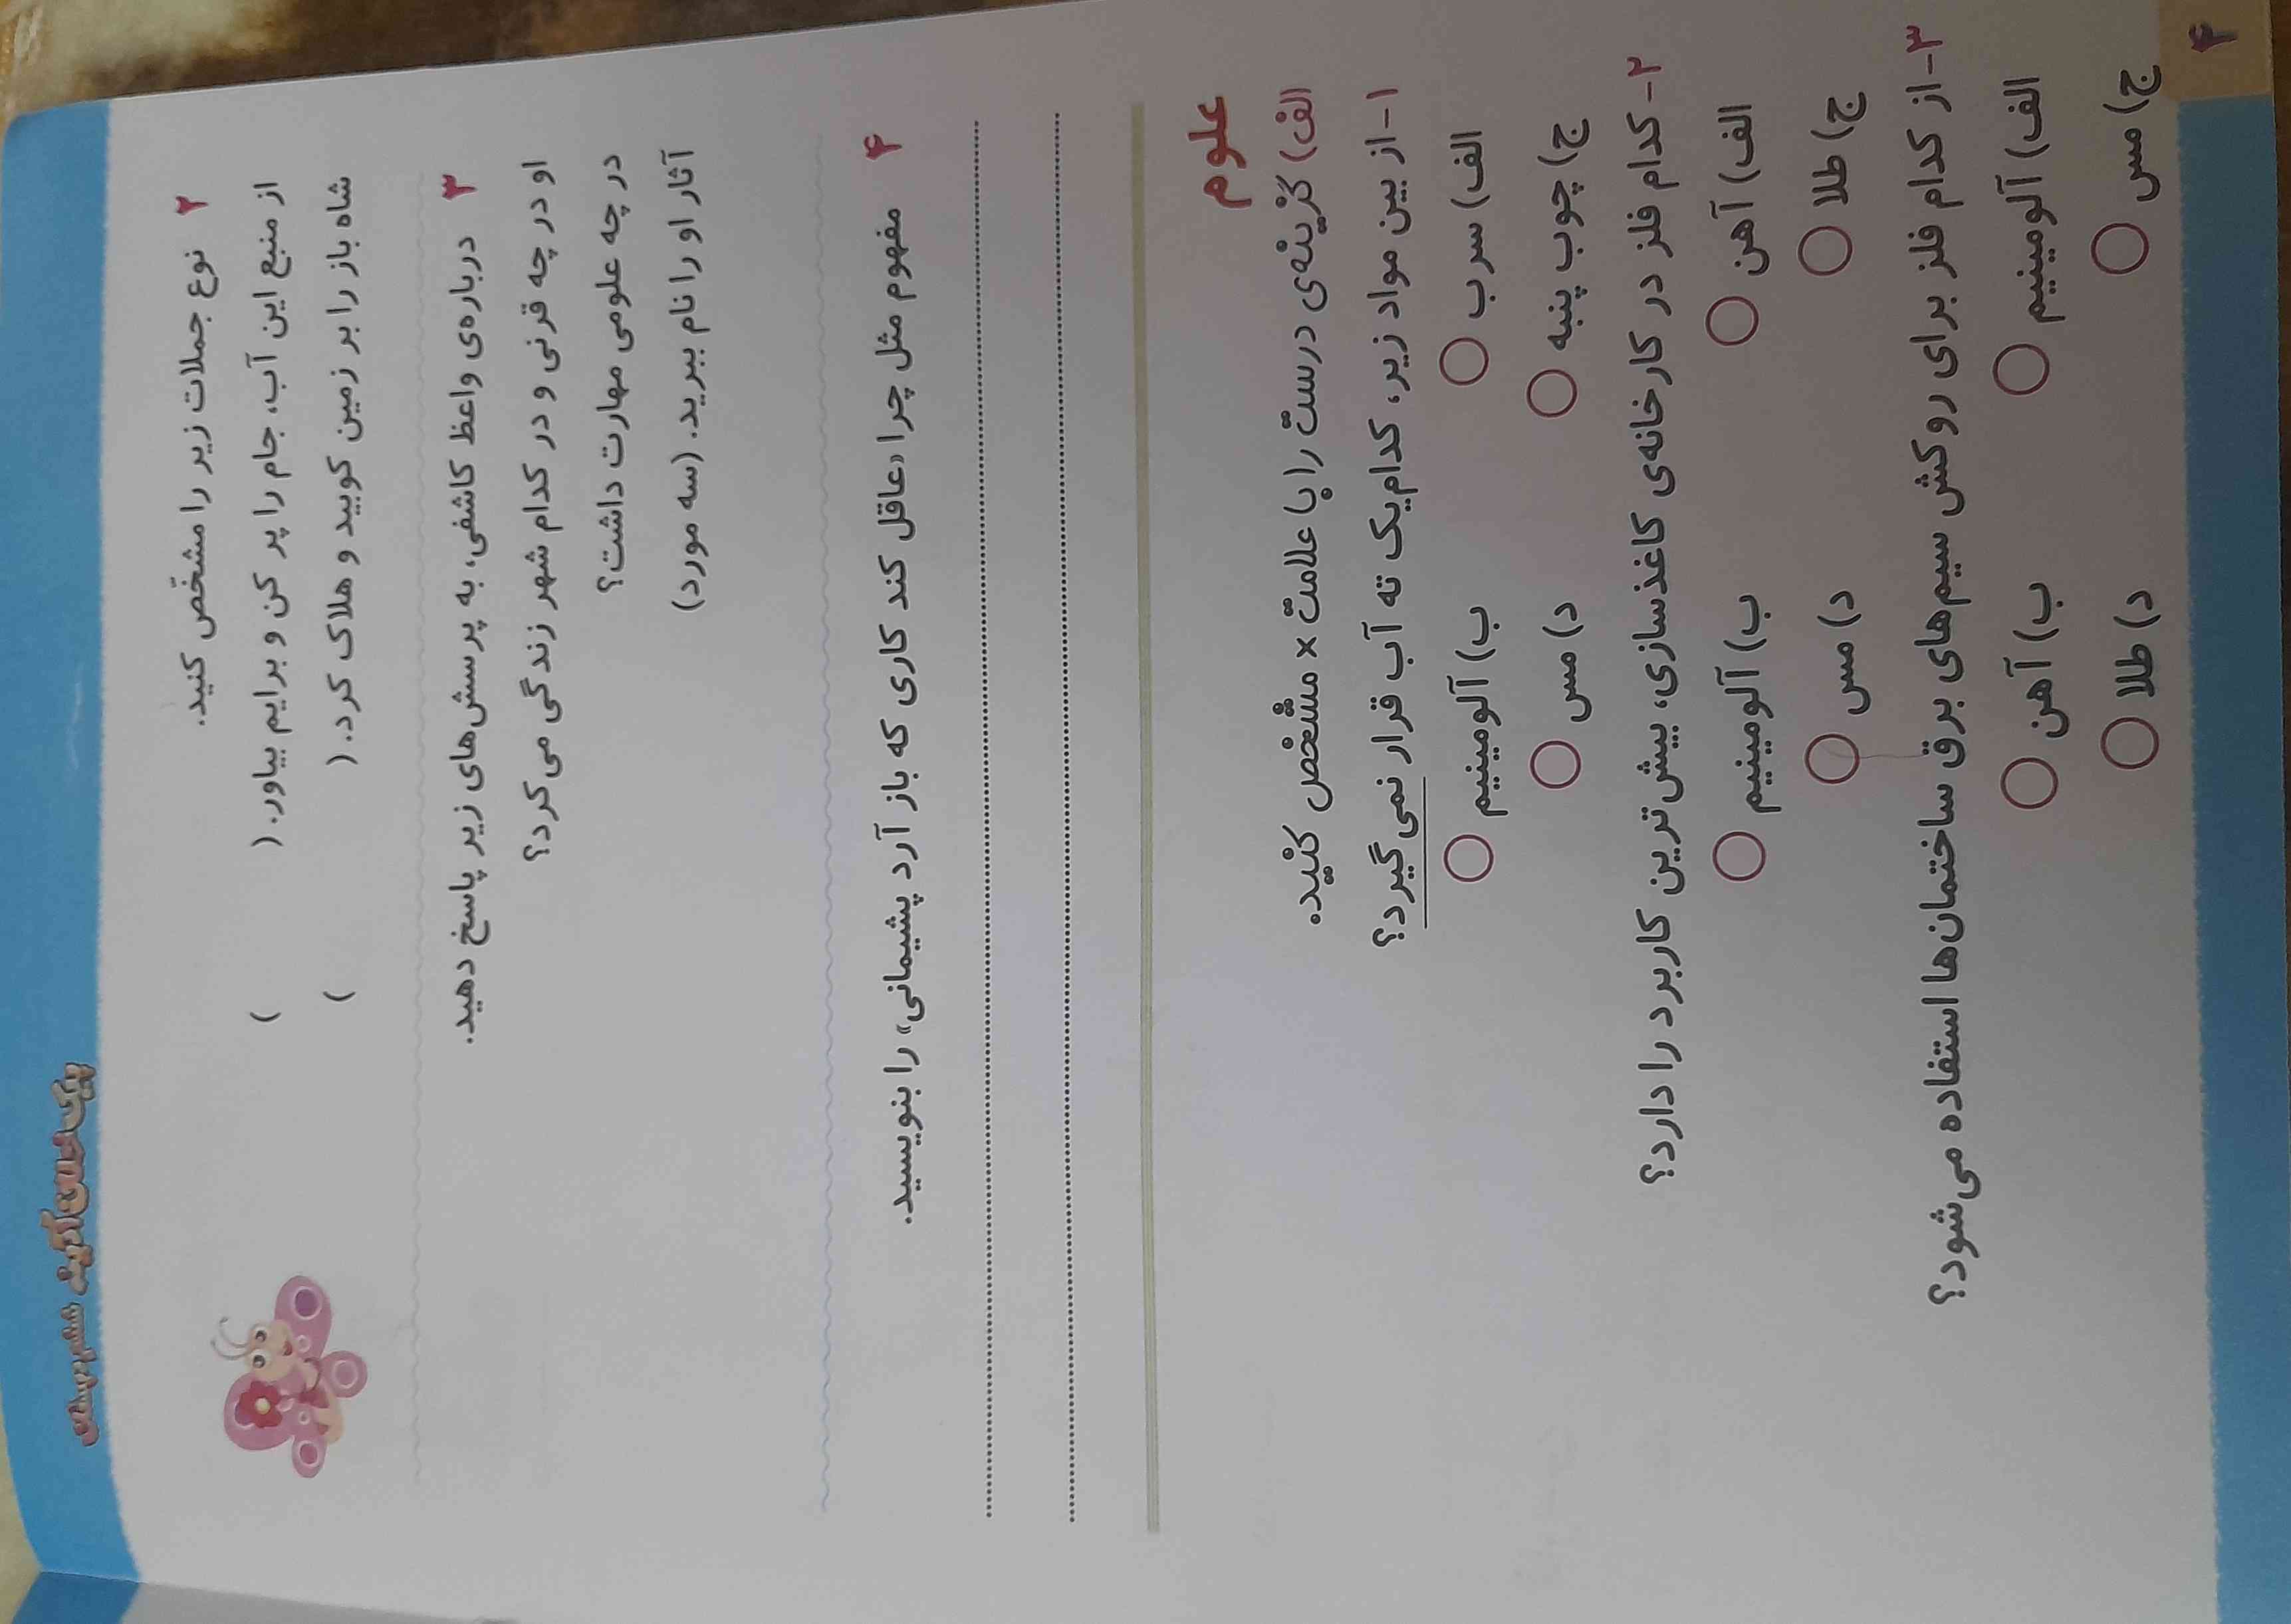 پیک خلاق آدینه ششم دبستان
۲ نوع جملات زیر را مشخّص کنید.
از منبع این آب، جام را پر کن و برایم بیاور. ( )
شاه باز را بر زمین کوبید و هلاک کرد. ( )
۳ درباره‌ی واعظ کاشفی، به پرسش‌های زیر پاسخ دهید.
او در چه قرنی و در کدام شهر زندگی می‌کرد؟
در چه علومی مهارت داشت؟
آثار او را نام ببرید. (سه مورد)
۴ مفهوم مثل چرا «عاقل کند کاری که باز آرد پشیمانی» را بنویسید.
علوم
الف) گزینه‌ی درست را با علامت × مشخص کنید.
۱- از بین مواد زیر، کدام‌یک ته آب قرار نمی‌گیرد؟
الف) سرب ب) آلومینیم
ج) چوب پنبه د) مس
۲- کدام فلز در کارخانه‌ی کاغذسازی، بیش‌ترین کاربرد را دارد؟
الف) آهن ب) آلومینیم
ج) طلا د) مس
۳- از کدام فلز برای روکش سیم‌های برق ساختمان‌ها استفاده می‌شود؟
الف) آلومینیم ب) آهن
ج) مس د) طلا
۴